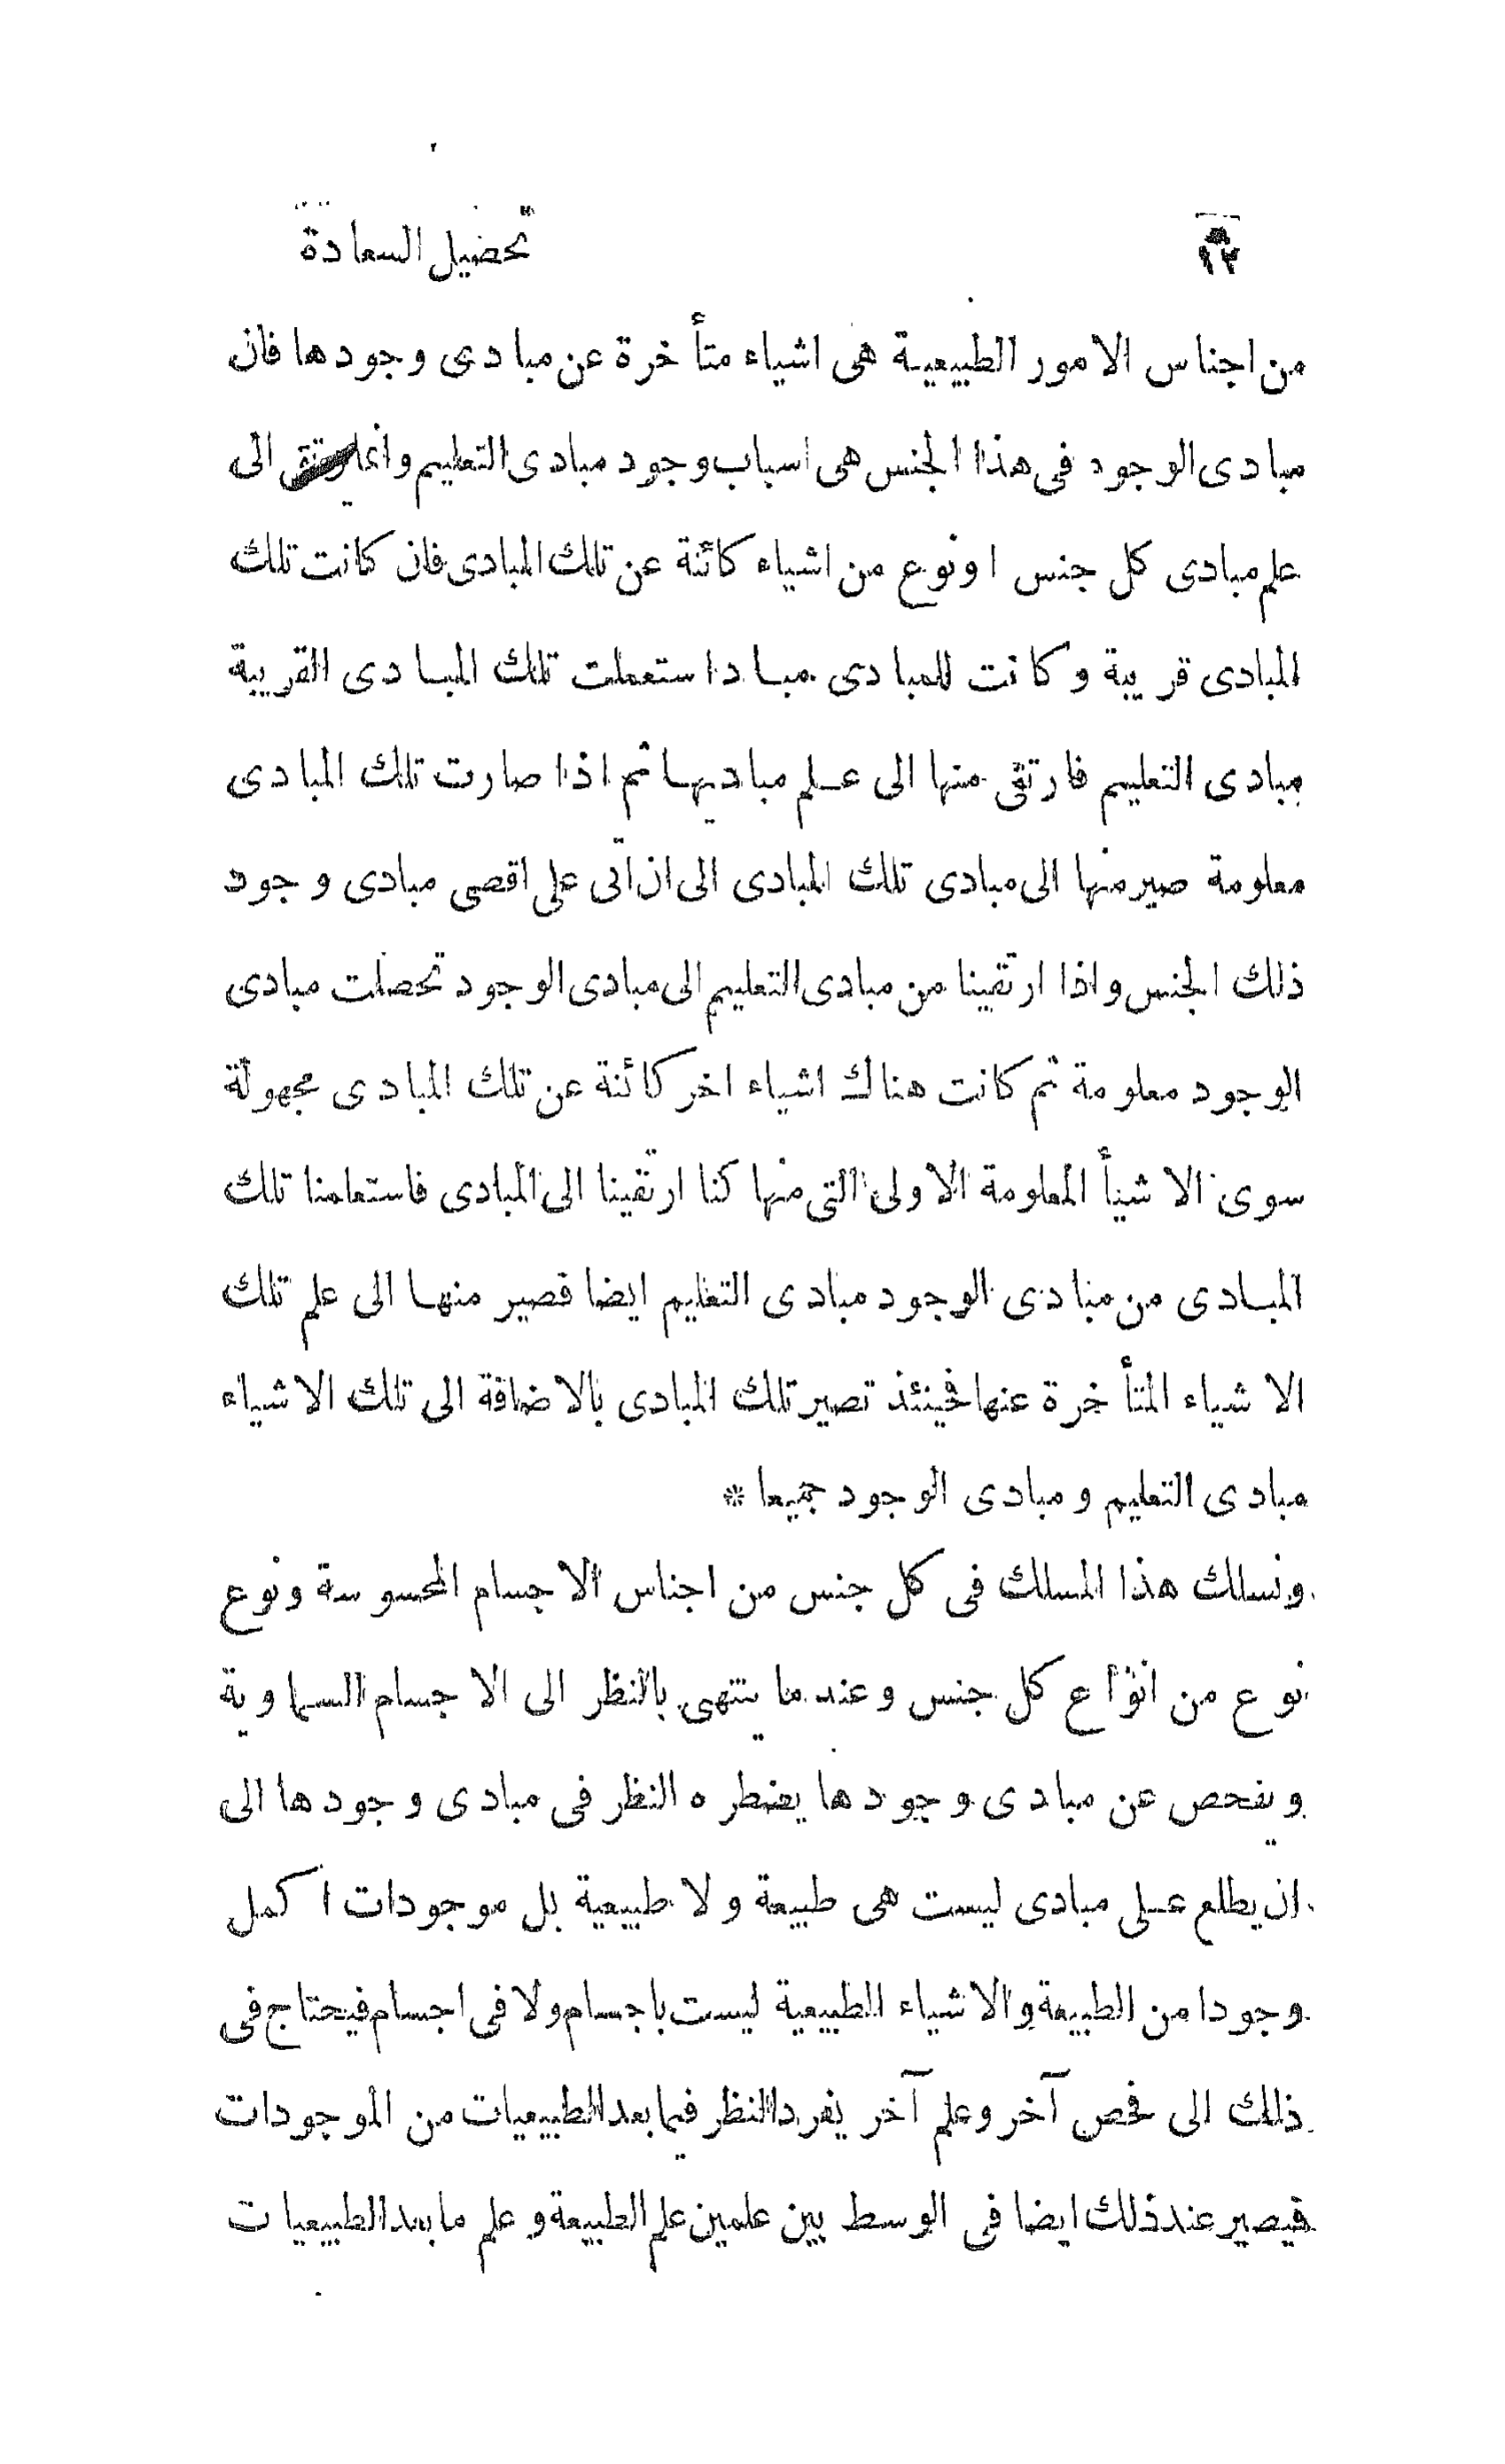 ١٢ تحصيل السعادة
من اجناس الامور الطبيعية هى اشياء متأخرة عن مبادى وجودها فان
مبادى الوجود فى هذا الجنس هى اسباب وجود مبادى التعليم وانما يرتقى الى
علم مبادى كل جنس او نوع من اشياء كائنة عن تلك المبادى فان كانت تلك
المبادى قريبة وكانت للمبادى مباد استعملت تلك المبادى القريبة
مبادى التعليم فارتقى منها الى علم مباديها ثم اذا صارت تلك المبادى
معلومة صير منها الى مبادى تلك المبادى الى ان آتى على اقصى مبادى وجود
ذلك الجنس واذا ارتقينا من مبادى التعليم الى مبادى الوجود تحصلت مبادى
الوجود معلومة ثم كانت هناك اشياء اخر كائنة عن تلك المبادى مجهولة
سوى الاشيأ المعلومة الاولى التى منها كنا ارتقينا الى المبادى فاستعلمنا تلك
المبادى من مبادى الوجود مبادى التعليم ايضا فصير منها الى علم تلك
الاشياء المتأخرة عنها فحينئذ تصير تلك المبادى بالاضافة الى تلك الاشياء
مبادى التعليم ومبادى الوجود جميعا *
ونسلك هذا المسلك فى كل جنس من اجناس الاجسام المحسوسة ونوع
نوع من انواع كل جنس وعند ما ينتهى بالنظر الى الاجسام السماوية
ويفحص عن مبادى وجودها يضطره النظر فى مبادى وجودها الى
ان يطلع على مبادى ليست هى طبيعة ولا طبيعية بل موجودات اكمل
وجودا من الطبيعة والاشياء الطبيعية ليست باجسام ولا فى اجسام فيحتاج فى
ذلك الى فحص آخر وعلم آخر يفرد النظر فيما بعد الطبيعيات من الموجودات
فيصير عند ذلك ايضا فى الوسط بين علمين علم الطبيعة وعلم ما بعد الطبيعيات